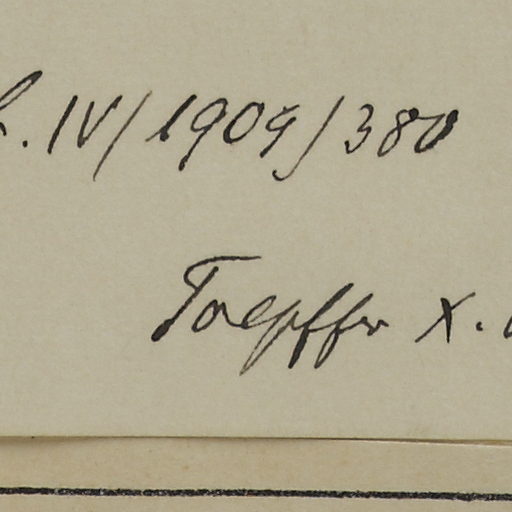 . IV/1909/380
Toepffer X.